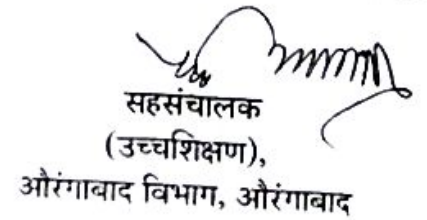 सहसंचालक
(उच्चशिक्षण),
औरंगाबाद विभाग, औरंगाबाद